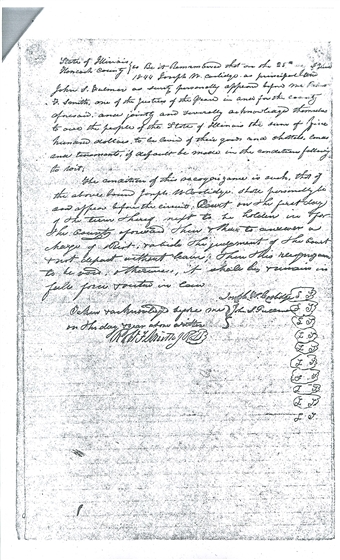 State of Illinois
Hancock County } ss Be it Remembered that on the 25th
1844 Joseph W. Coolidge as principal and
John S. Fullmer as surety personally appeared before me
F. Smith, one of the justices of the Peace in and for the county
aforesaid and jointly and severally acknowledged themselves
to owe the people of the State of Illinois the sum of
hundred dollars to be levied of their goods and chattels lands
and tenements, if default be made in the condition following
to wit,
The condition of this recognizance is such, that if
the above bound Joseph W Coolidge shall personally be
and appear before the circuit Court on the first day
of the term thereof next to be holden in & for
the County aforesaid then & there to answer a
charge of Riot & abide the judgment of the Court
& not depart without leave; then this recognizance
to be void otherwise, it shall be & remain in
full force & virtue in law
Joseph W Coolidge
Taken & acknowledged before me } John S. Fullmer
on the day & year above written
F. Smith J P